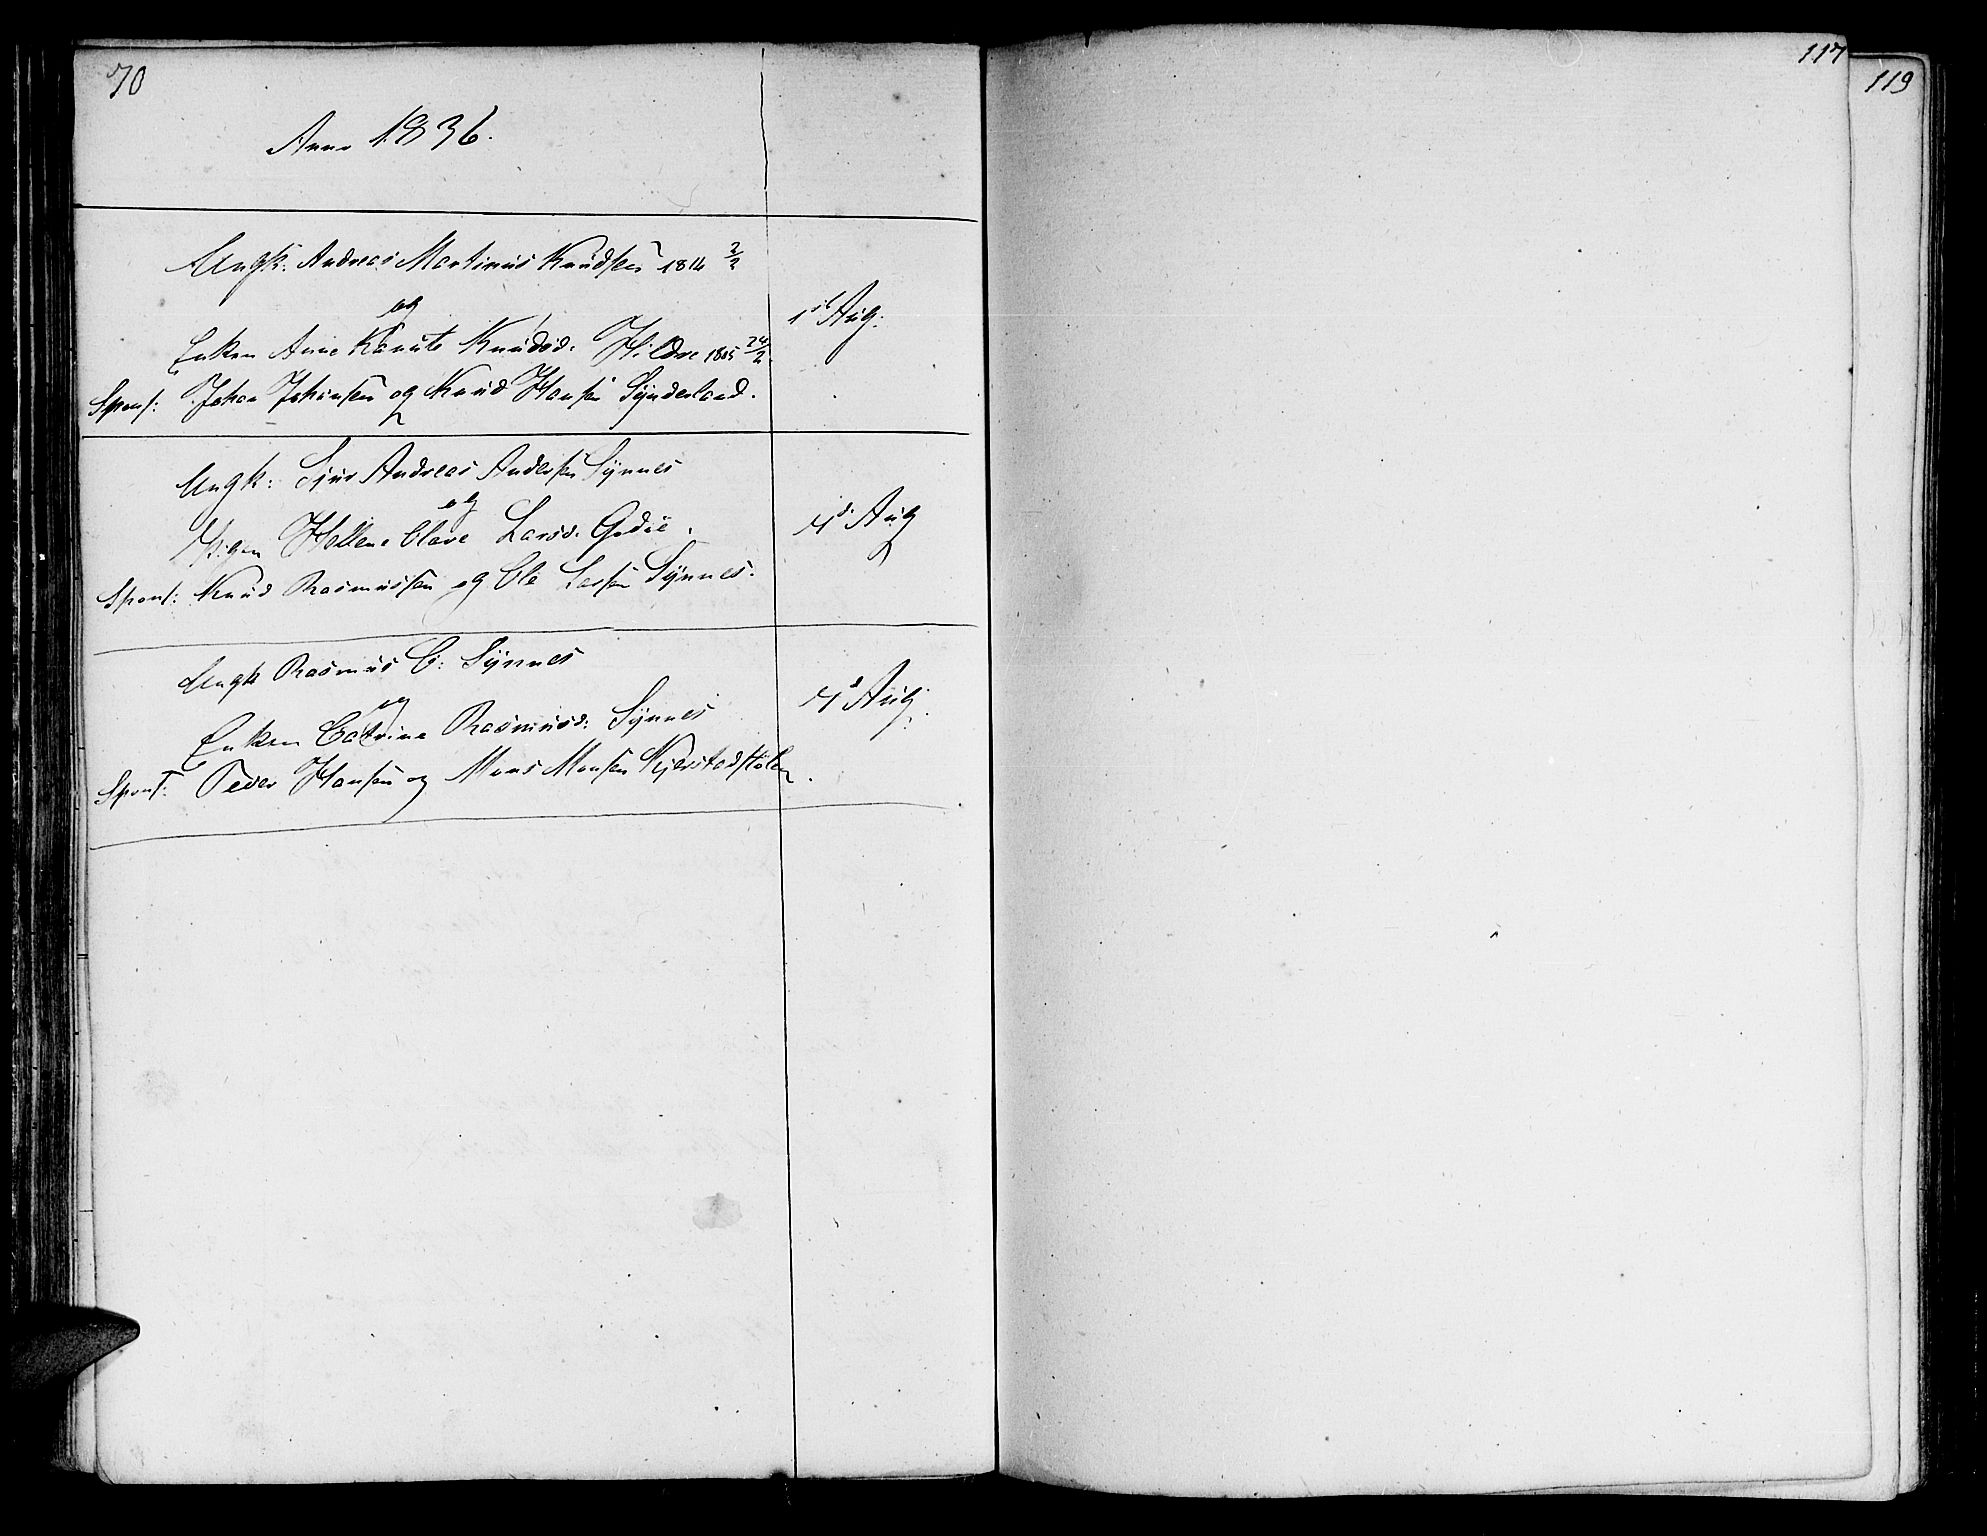 70
Anno 1836.
Ungk: Andreas Martinus Knudsen 1814 2/2
og
Enken Ane Kanute Knudsd. Hildre 1805 24/2
1st Aug:
Spons: Johan Johansen og Knud Hansen Synderland.
Ungk: Sjur Andreas Andersen Synnes
og
Pigen Hellene Olave Larsd. Godøe.
4d. Aug
Spons: Knud Rasmussen og Ole Larsen Synnes.
Ungk Rasmus O: Synnes
og
Enken Catrine Rasmusd: Synnes
4d Aug:
Spons: Peder Hansen og Mons Monsen Kjerstadstølen.
117
119